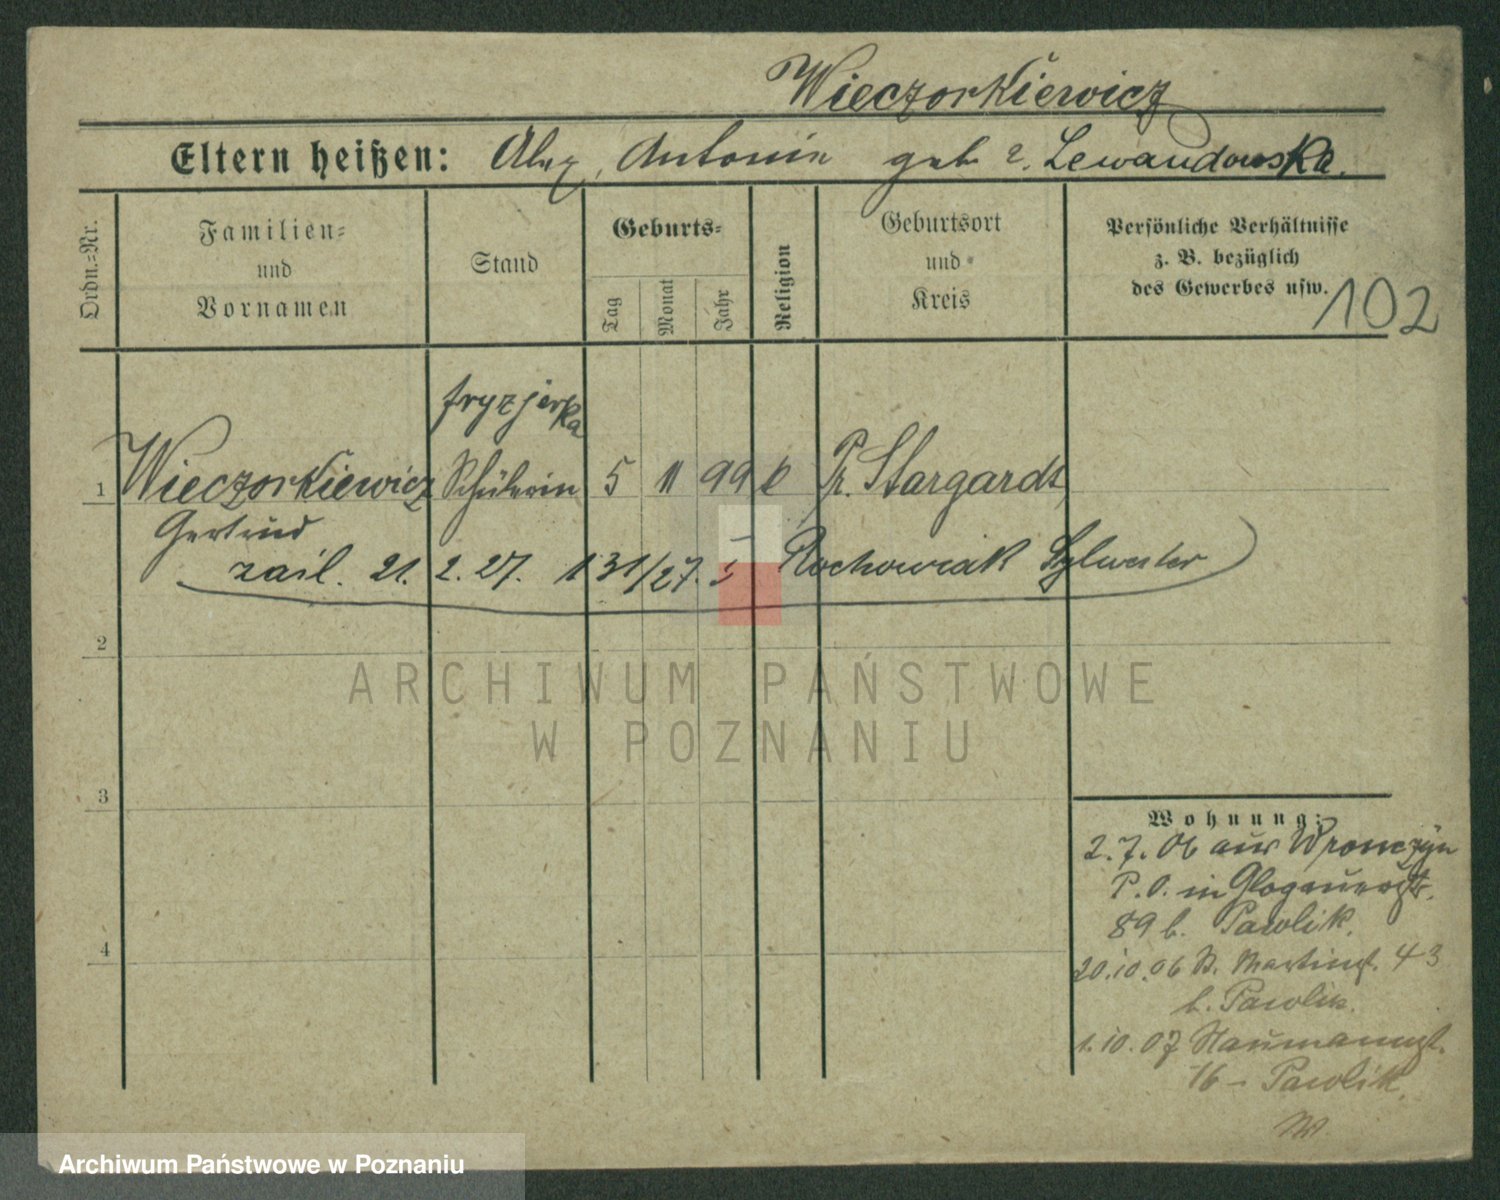 Wieczorkiewicz
Eltern heißen: Alex, Antonie geb. Lewandowska.
Ordn.-Nr.
Familien-
und
Vornamen
Stand
Geburts-
Tag
Monat
Jahr
Religion
Geburtsort
und
Kreis
Persönliche Verhältnisse
z. B. bezüglich
des Gewerbes usw.
102
fryzjerka
1 Wieczorkiewicz Schülerin 5 11 99 k Pr. Stargardt
Gertrud
zaśl. 21. 2. 27. 131/27. Rochowiak Sylwester
2
3
4
Wohnung:
2.7.06 aus Wronczyn
P.O. in Glogauerstr.
89 b. Pawlik.
20.10.06 St. Martinst. 43
b. Pawlik.
1.10.07 Naumannst.
16 - Pawlik.
ARCHIWUM PAŃSTWOWE
W POZNANIU
Archiwum Państwowe w Poznaniu